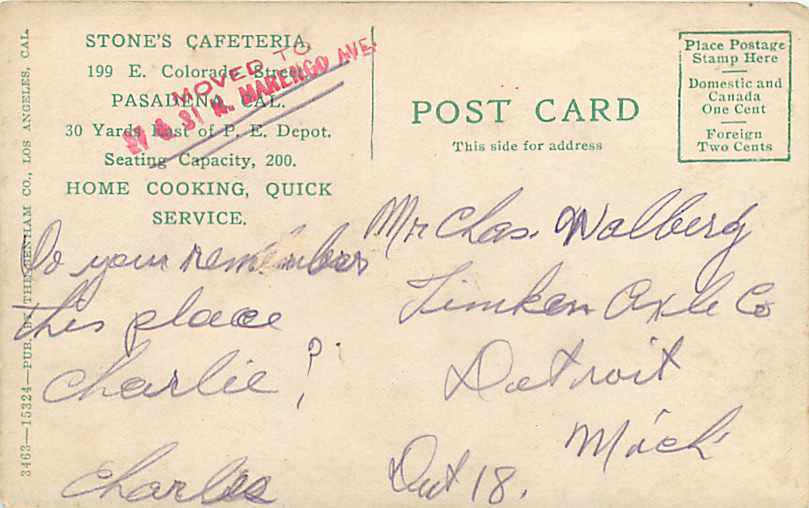 STONE'S CAFETERIA,
199 E. Colorado Street,
PASADENA, CAL.
30 Yards East of P. E. Depot.
Seating Capacity, 200.
HOME COOKING, QUICK
SERVICE.
MOVED TO
31 N. MARENGO AVE.
POST CARD
This side for address
Place Postage
Stamp Here
Domestic and
Canada
One Cent
Foreign
Two Cents
3463—15324—PUB. BY THE BENHAM CO., LOS ANGELES, CAL.
Do your remember
this place
Charlie?
Charles
Mr Chas. Walberg
Timken Axle Co
Detroit
Mich
18.